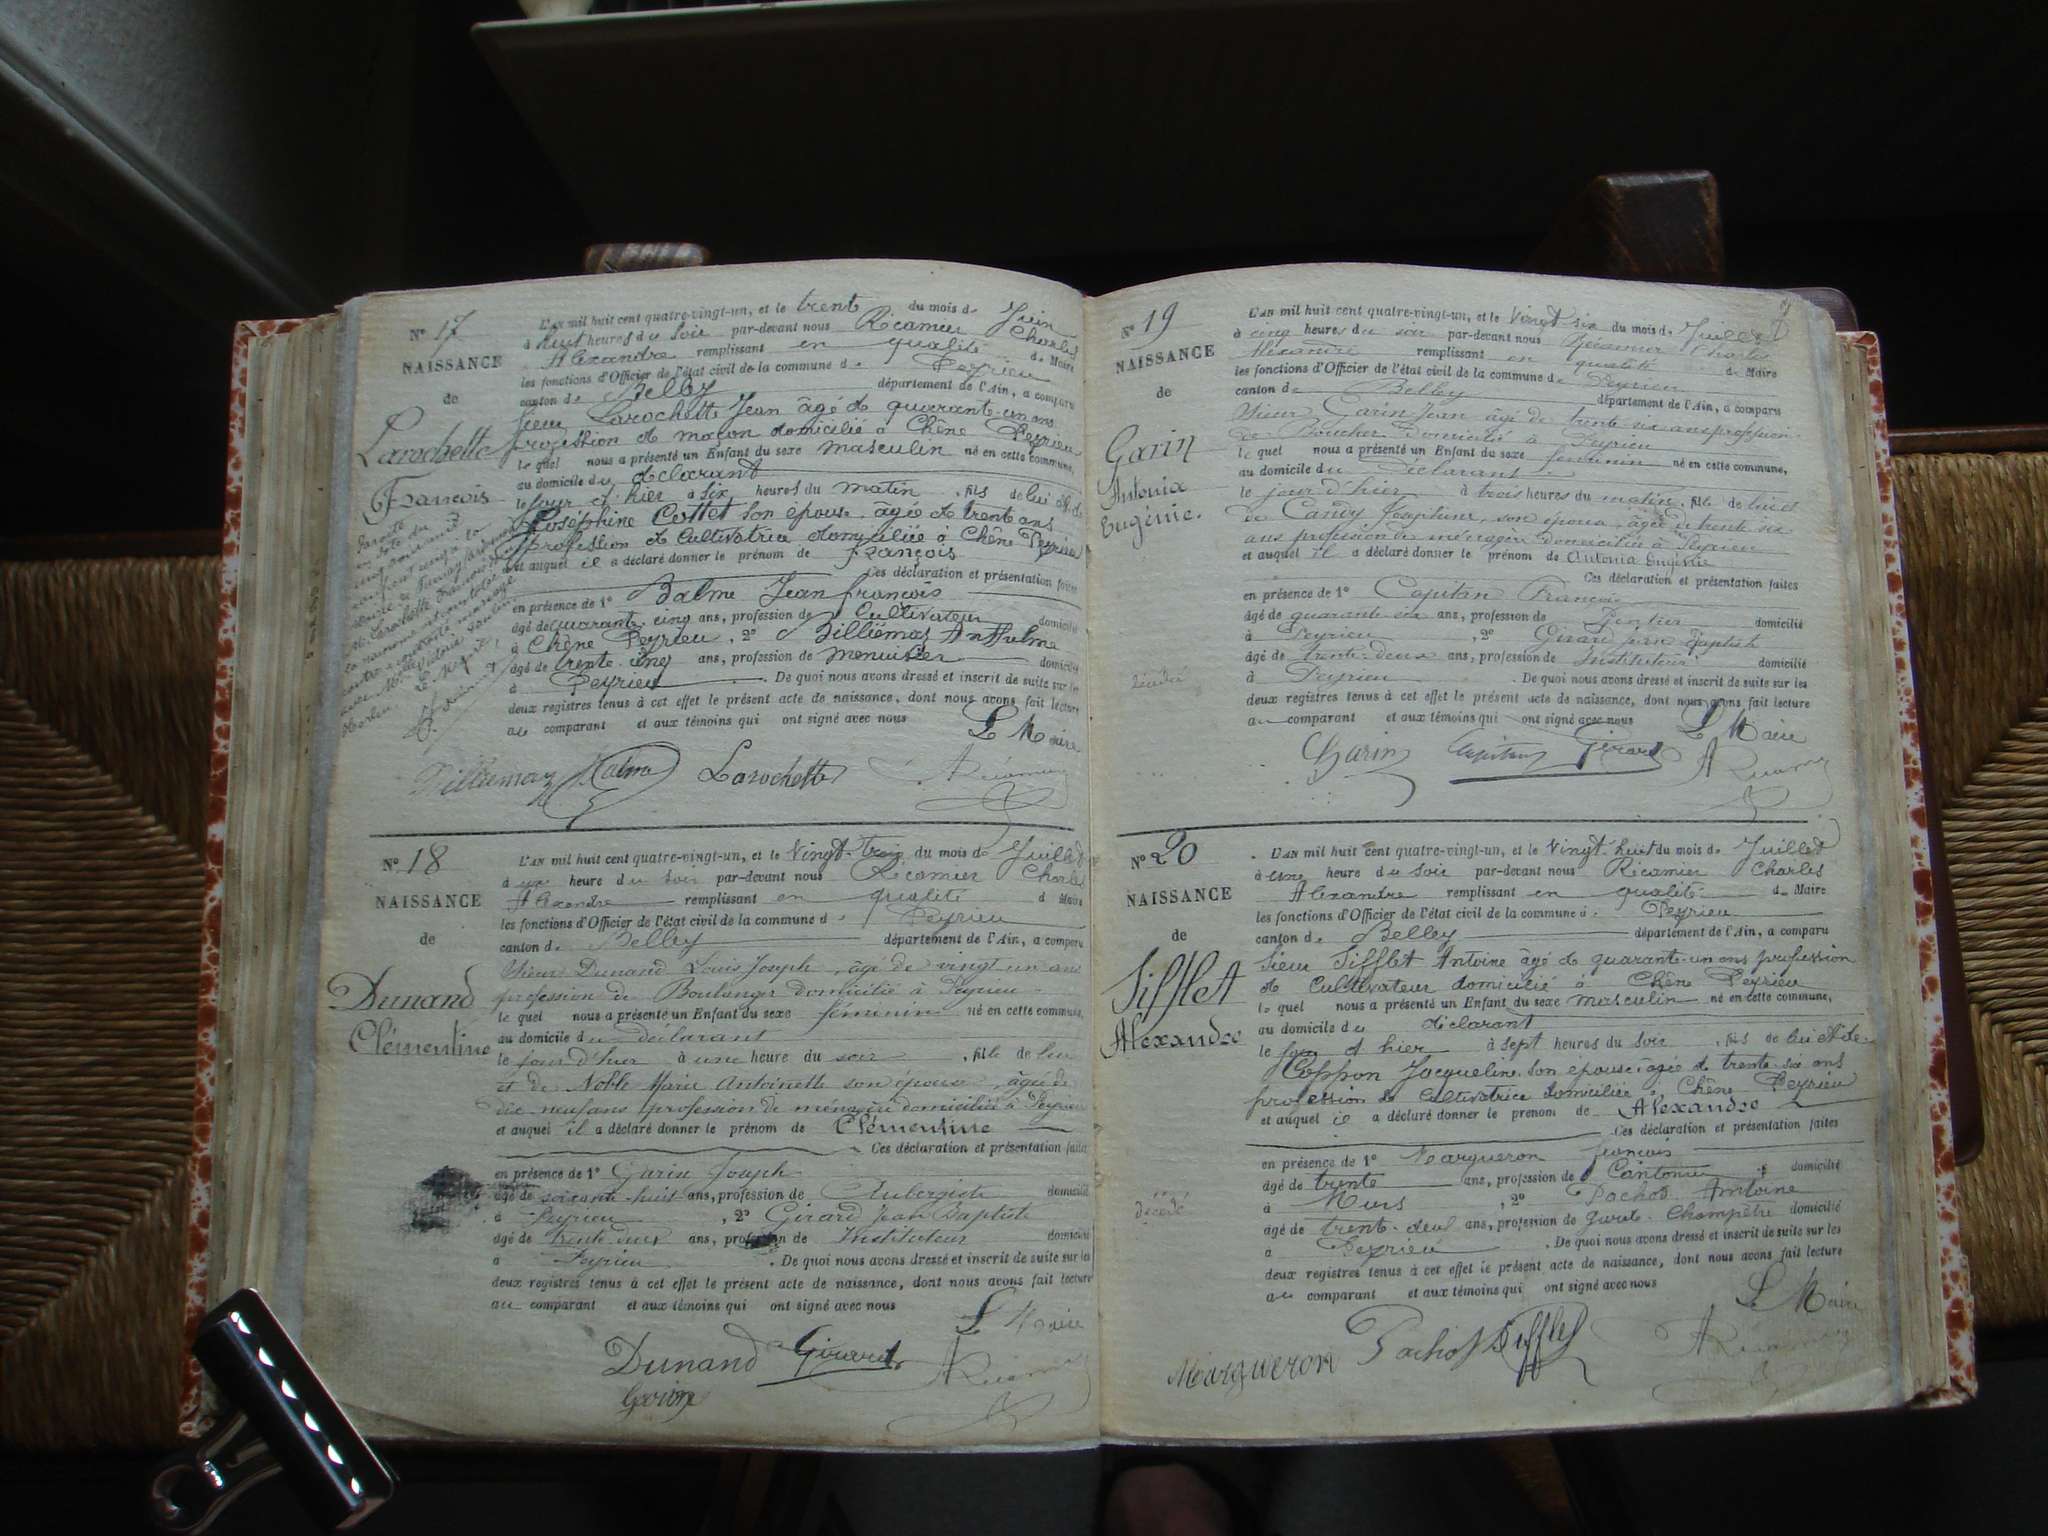 N° 17
NAISSANCE
de
Larochette
François
L'AN mil huit cent quatre-vingt-un, et le trente du mois de Juin
à huit heures du soir par-devant nous Récamier Charles
Alexandre remplissant en qualité de Maire
les fonctions d'Officier de l'état civil de la commune de Peyrieu
canton de Belley département de l'Ain, a comparu
sieur Larochette Jean âgé de quarante-un ans
profession de maçon domicilié à Chêne Peyrieu
le quel nous a présenté un Enfant du sexe masculin né en cette commune,
au domicile du déclarant
le jour d'hier à six heures du matin, fils de lui et de
Joséphine Cottet son épouse, âgée de trente ans
profession de Cultivatrice domiciliée à Chêne Peyrieu
et auquel il a déclaré donner le prénom de François
Ces déclaration et présentation faites
en présence de 1° Balme Jean françois
âgé de quarante cinq ans, profession de Cultivateur domicilié
à Chêne Peyrieu, 2° Billiémaz Anthelme
âgé de trente cinq ans, profession de menuisier domicilié
à Peyrieu. De quoi nous avons dressé et inscrit de suite sur les
deux registres tenus à cet effet le présent acte de naissance, dont nous avons fait lecture
au comparant et aux témoins qui ont signé avec nous
Le Maire
Billiemaz Balme Larochette A Récamier
N° 18
NAISSANCE
de
Dunand
Clémentine
L'AN mil huit cent quatre-vingt-un, et le Vingt-trois du mois de Juillet
à une heure du soir par-devant nous Récamier Charles
Alexandre remplissant en qualité d Maire
les fonctions d'Officier de l'état civil de la commune d Peyrieu
canton de Belley département de l'Ain, a comparu
Sieur Dunand Louis Joseph, âgé de vingt un ans
profession de Boulanger domicilié à Peyrieu
le quel nous a présenté un Enfant du sexe féminin né en cette commune,
au domicile du déclarant
le jour d'hier à une heure du soir, fille de lui
et de Noble Marie Antoinette son épouse, âgée de
dix neuf ans profession de ménagère domiciliée à Peyrieu
et auquel il a déclaré donner le prénom de Clémentine
Ces déclaration et présentation faites
en présence de 1° Garin Joseph
âgé de soixante-huit ans, profession de Aubergiste domicilié
à Peyrieu, 2° Girard Jean Baptiste
âgé de trente-deux ans, profession de Instituteur domicilié
à Peyrieu. De quoi nous avons dressé et inscrit de suite sur les
deux registres tenus à cet effet le présent acte de naissance, dont nous avons fait lecture
au comparant et aux témoins qui ont signé avec nous
Le Maire
Dunand Girard A Récamier
Garin
N° 19
NAISSANCE
de
Garin
Antonia
Eugénie.
décédée
L'AN mil huit cent quatre-vingt-un, et le Vingt-six du mois de Juillet
à cinq heures du soir par-devant nous Récamier Charles
Alexandre remplissant en qualité de Maire
les fonctions d'Officier de l'état civil de la commune de Peyrieu
canton de Belley département de l'Ain, a comparu
Sieur Garin Jean âgé de trente six ans profession
de Boucher Domicilié à Peyrieu
le quel nous a présenté un Enfant du sexe féminin né en cette commune,
au domicile du Déclarant
le jour d'hier à trois heures du matin, fille de lui et
de Josephine, son épouse, âgée de trente six
ans profession de ménagère domiciliée à Peyrieu
et auquel il a déclaré donner le prénom de Antonia Eugénie
Ces déclaration et présentation faites
en présence de 1° Capitan François
âgé de quarante six ans, profession de Rentier domicilié
à Peyrieu, 2° Girard jean Baptiste
âgé de trente-deux ans, profession de Instituteur domicilié
à Peyrieu. De quoi nous avons dressé et inscrit de suite sur les
deux registres tenus à cet effet le présent acte de naissance, dont nous avons fait lecture
au comparant et aux témoins qui ont signé avec nous
Le Maire
Garin Capitan Girard A Récamier
N° 20
NAISSANCE
de
Sifflet
Alexandre
décédé
L'AN mil huit cent quatre-vingt-un, et le Vingt-huit du mois de Juillet
à une heure du soir par-devant nous Récamier Charles
Alexandre remplissant en qualité de Maire
les fonctions d'Officier de l'état civil de la commune d Peyrieu
canton de Belley département de l'Ain, a comparu
Sieur Sifflet Antoine âgé de quarante-un ans profession
de Cultivateur domicilié à Chêne Peyrieu
le quel nous a présenté un Enfant du sexe masculin né en cette commune,
au domicile du déclarant
le jour d'hier à sept heures du soir, fils de lui et de
Coppon Jacqueline son épouse, âgée de trente six ans
profession de Cultivatrice domiciliée à Chêne Peyrieu
et auquel il a déclaré donner le prénom de Alexandre
Ces déclaration et présentation faites
en présence de 1° Margueron françois
âgé de trente ans, profession de Cantonnier domicilié
à Murs, 2° Pochod Antoine
âgé de trent-deux ans, profession de Garde-Champêtre domicilié
à Peyrieu. De quoi nous avons dressé et inscrit de suite sur les
deux registres tenus à cet effet le présent acte de naissance, dont nous avons fait lecture
au comparant et aux témoins qui ont signé avec nous
Le Maire
Margueron Pachod Sifflet A Récamier